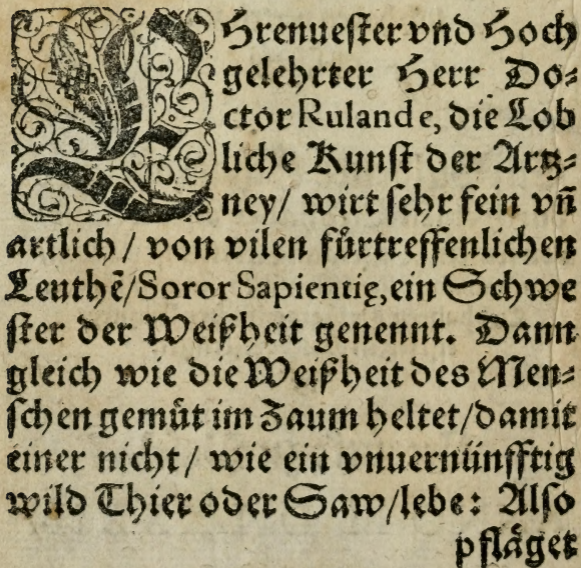 EHrenuester vnd Hoch
gelehrter Herr Do⸗
ctor Rulande, die Lob
liche Kunst der Artz⸗
ney/ wirt sehr fein vn̄
artlich/ von vilen fürtreffenlichen
Leuthē/Soror Sapientię, ein Schwe
ster der Weißheit genennt. Dann
gleich wie die Weißheit des Men⸗
schen gemüt im Zaum heltet/damit
einer nicht/ wie ein vnuernünfftig
wild Thier oder Saw/lebe: Also
pfläget